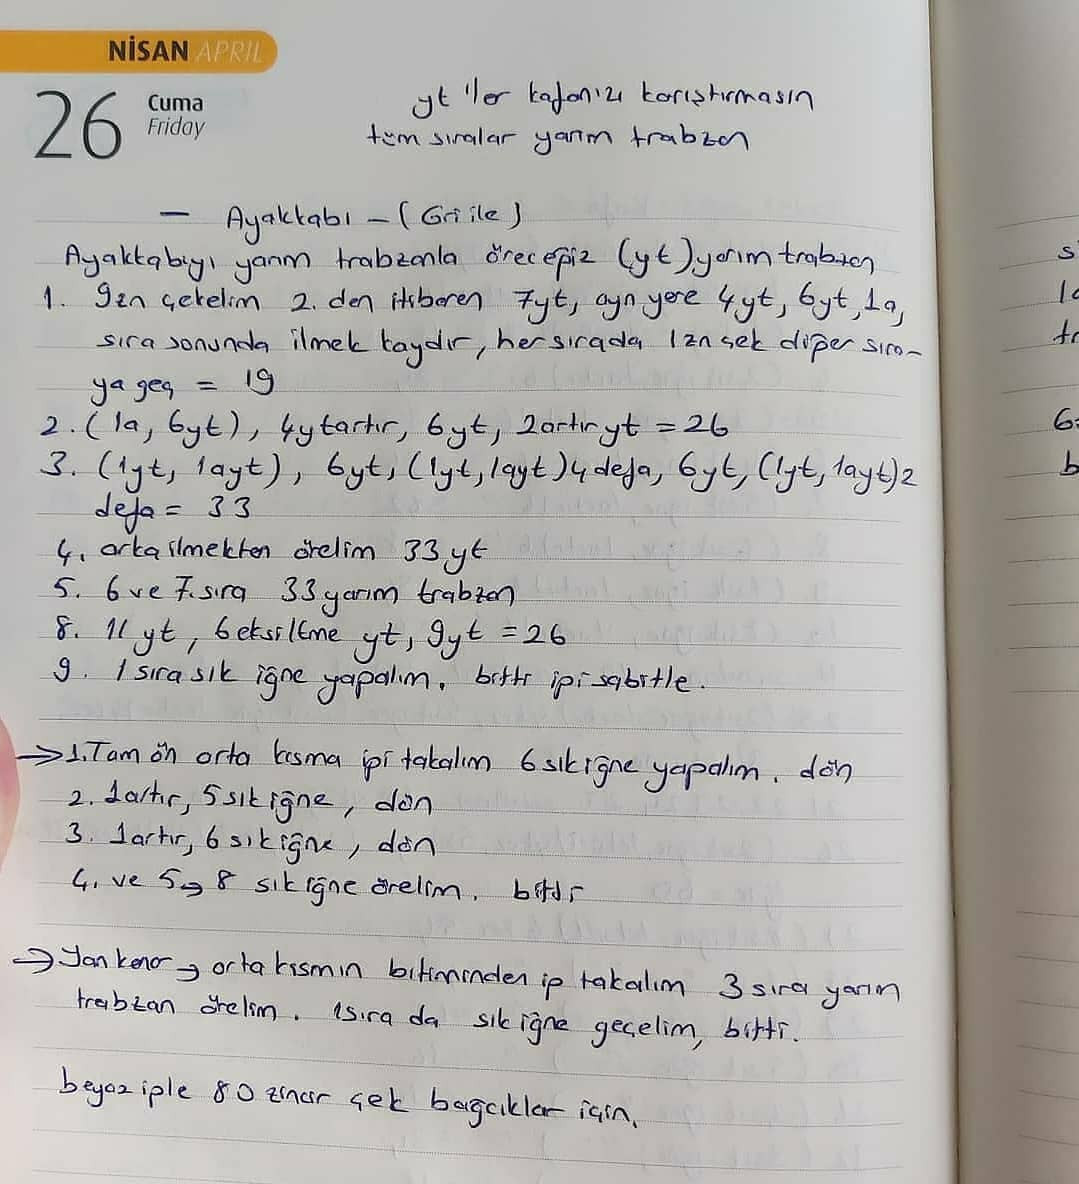 NİSAN APRIL
26 Cuma
Friday
yt 'ler kafanızı karıştırmasın
tüm sıralar yarım trabzan
— Ayaktabı – (Gri ile)
Ayaktabıyı yarım trabzanla örecegiz (yt) yarım trabzan
1. 9zn çekelim 2. den itibaren 7yt, aynı yere 4yt, 6yt, 1a,
sıra sonunda ilmek kaydır, her sırada 1zn çek diğer sıra-
ya geç = 19
2. (1a, 6yt), 4ytartır, 6yt, 2artır yt = 26
3. (1yt, 1ayt), 6yt, (1yt, 1ayt) 4 defa, 6yt, (1yt, 1ayt) 2
defa = 33
4. arka ilmekten örelim 33 yt
5. 6 ve 7. sıra 33 yarım trabzan
8. 11 yt, 6 eksiltme yt, 9yt = 26
9. 1 sıra sık iğne yapalım. bitti ipi sabitle.
→ 1. Tam ön orta kısma ipi takalım 6 sık iğne yapalım. dön
2. 1artır, 5 sık iğne, dön
3. 1artır, 6 sık iğne, dön
4. ve 5 → 8 sık iğne örelim. bitti
→ Yan kenar → orta kısmın bitiminden ip takalım 3 sıra yarım
trabzan örelim. 1sıra da sık iğne geçelim, bitti.
beyaz iple 80 zincir çek bağcıklar için.
s
1a
tr
6
b